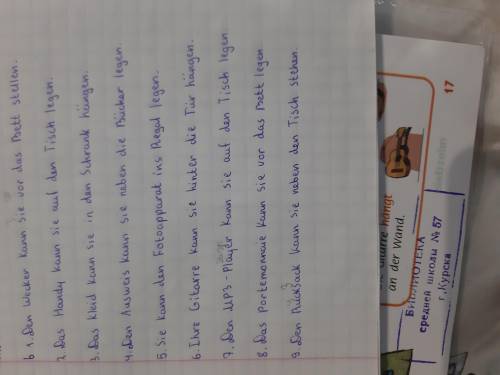 6 1. Den Wecker kann sie vor das Bett stellen.
2. Das Handy kann sie auf den Tisch legen.
3. Das Kleid kann sie in den Schrank hängen.
4. Den Ausweis kann sie neben die Bücher legen.
5. Sie kann den Fotoapparat ins Regal legen.
6. Ihre Gitarre kann sie hinter die Tür hängen.
7. Den MP3-Player kann sie auf den Tisch legen.
8. Das Portemonnaie kann sie vor das Bett legen.
9. Den Rücksack kann sie neben den Tisch stehen.
Gitarre hängt
an der Wand.
БИБЛИОТЕКА
средней школы № 57
г. Курска
17